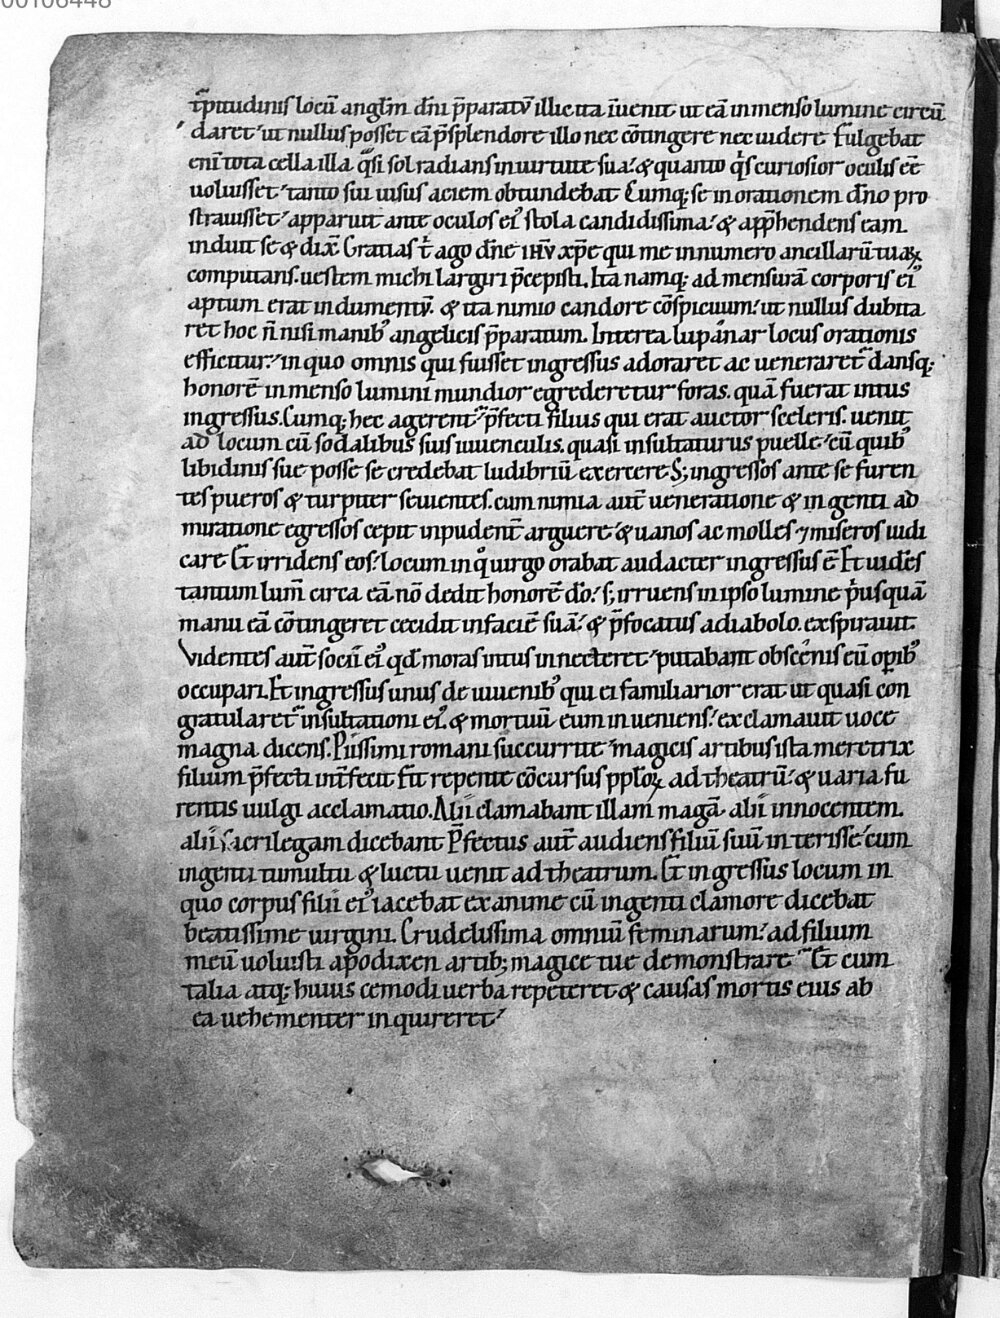 00106448
t̄pitudinis locū angl̄m dn̄i p̄paratū illic ita īuenit ut eā inmenso lumine circū
daret ut nullus posset eā p̄ splendore illo nec cōtingere nec uidere Fulgebat
enī tota cella illa q̄si sol radians in uirtute sua. & quanto q̇s curiosior oculis eē
uoluisset tanto sui uisus aciem obtundebat Cumq; se in orationem dn̄o pro
strauisset apparuit ante oculos ei᾽ stola candidissima. & app̄hendens eam
induit se & dix̄ Gratias t̄ ago dn̄e ihū xp̄e qui me in numero ancillarū tuaꝝ
computans. uestem michi largiri p̄cepisti. Ita namq; ad mensurā corporis ei᾽
aptum erat indumentū. & ita nimio candore cōspicuum. ut nullus dubita
ret hoc n̄ nisi manib᾽ angelicis p̄paratum. Interea lupanar locus orationis
efficitur. in quo omnis qui fuisset ingressus adoraret ac ueneraret᷑ dansq;
honorē inmenso lumini mundior egrederetur foras. quā fuerat intus
ingressus. Cumq; hec agerent᷑ p̄fecti filius qui erat auctor sceleris. uenit
ad locum cū sodalibus suis iuuenculis. quasi insultaturus puelle cū quib᾽
libidinis sue posse se credebat ludibriū exercere S; ingressos ante se furen
tes pueros & turpiter seuientes. cum nimia aut̄ ueneratione & ingenti ad
miratione egressos cepit inpudent̄ arguere & uanos ac molles ⁊ miseros iudi
care Et irridens eos. locum in q̊ uirgo orabat audacter ingressus ē Et uidēs
tantum lum̄ circa eā nō dedit honorē do᷑. s; irruens in ipso lumine p̓usquā
manu eā cōtingeret cecidit in faciē suā. & p̄focatus a diabolo. exspirauit.
Videntes aut̄ socii ei᾽ qd̄ moras intus innecteret putabant obscenis eū opib᾽
occupari. Et ingressus unus de iuuenib᾽ qui ei familiarior erat ut quasi con
gratularet᷑ insultationi ei᾽. & mortuū eum inueniens. exclamauit uoce
magna dicens. Piissimi romani succurrite magicis artibus ista meretrix
filium p̄fecti int̄fecit Fit repente cōcursus pploꝝ ad theatrū. & uaria fu
rentis uulgi acclamatio. Alii clamabant illam magā alii innocentem.
alii sacrilegam dicebant P̄fectus aut̄ audiens filiū suū interisse cum
ingenti tumultu & luctu uenit ad theatrum. Et ingressus locum in
quo corpus filii ei᾽ iacebat exanime cū ingenti clamore dicebat
beatissime uirgini. Crudelissima omniū feminarum. ad filium
meū uoluisti apodixen artib; magice tue demonstrare Et cum
talia atq; huius cemodi uerba repeteret & causas mortis eius ab
ea uehementer inquireret